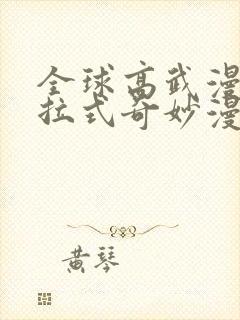 全球高武漫
拉式奇妙漫
黄琴